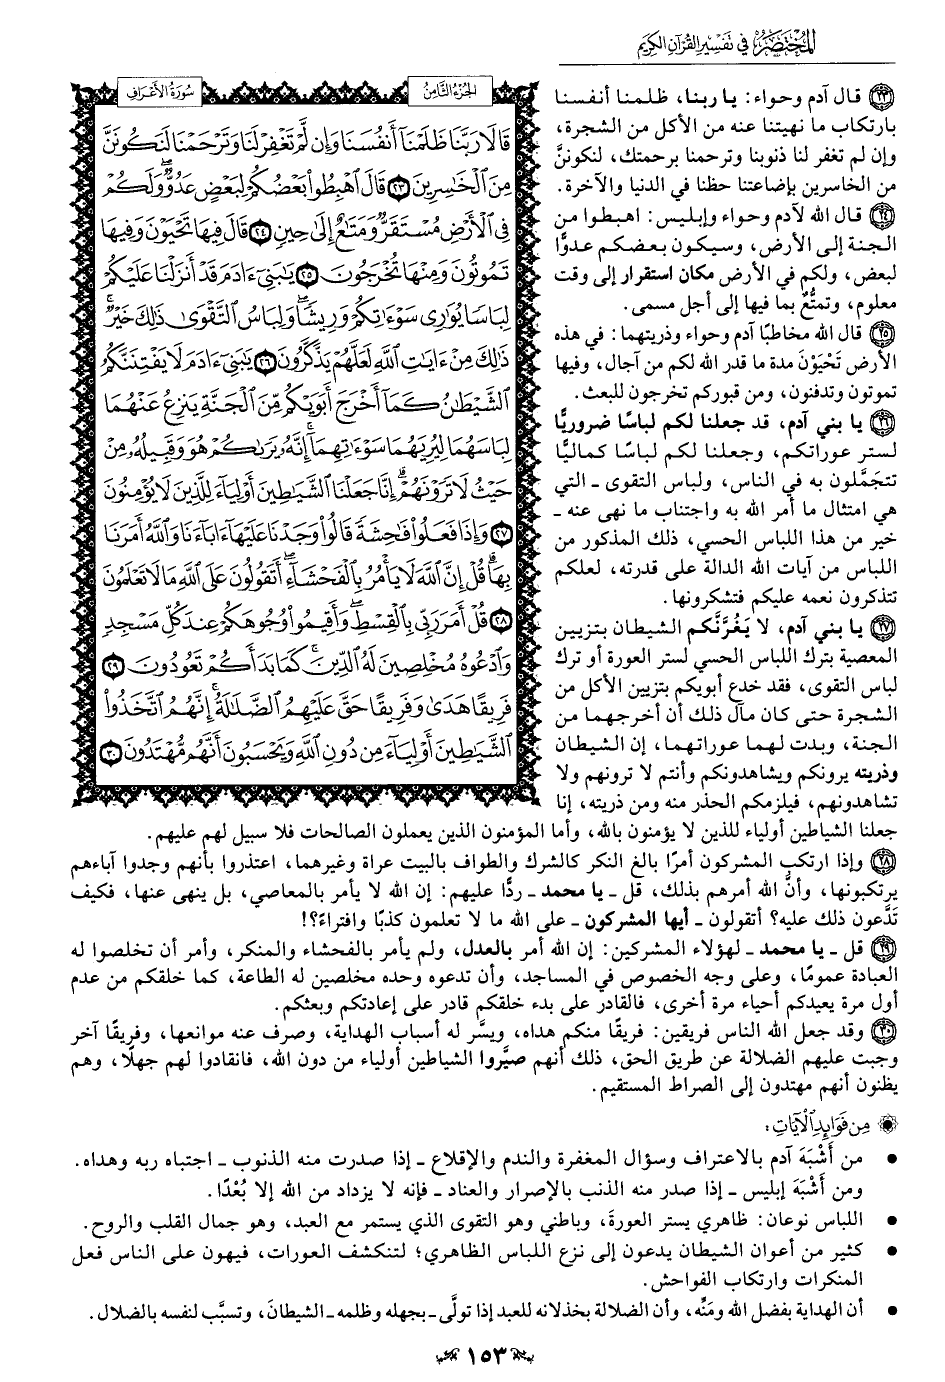 المختصر في تفسير القرآن الكريم
سورة الأعراف
الجزء الثامن
قَالَا رَبَّنَا ظَلَمْنَآ أَنفُسَنَا وَإِن لَّمْ تَغْفِرْ لَنَا وَتَرْحَمْنَا لَنَكُونَنَّ
مِنَ ٱلْخَٰسِرِينَ ٢٣ قَالَ ٱهْبِطُوا۟ بَعْضُكُمْ لِبَعْضٍ عَدُوٌّ وَلَكُمْ
فِى ٱلْأَرْضِ مُسْتَقَرٌّ وَمَتَٰعٌ إِلَىٰ حِينٍ ٢٤ قَالَ فِيهَا تَحْيَوْنَ وَفِيهَا
تَمُوتُونَ وَمِنْهَا تُخْرَجُونَ ٢٥ يَٰبَنِىٓ ءَادَمَ قَدْ أَنزَلْنَا عَلَيْكُمْ
لِبَاسًا يُوَٰرِى سَوْءَٰتِكُمْ وَرِيشًا وَلِبَاسُ ٱلتَّقْوَىٰ ذَٰلِكَ خَيْرٌ
ذَٰلِكَ مِنْ ءَايَٰتِ ٱللَّهِ لَعَلَّهُمْ يَذَّكَّرُونَ ٢٦ يَٰبَنِىٓ ءَادَمَ لَا يَفْتِنَنَّكُمُ
ٱلشَّيْطَٰنُ كَمَآ أَخْرَجَ أَبَوَيْكُم مِّنَ ٱلْجَنَّةِ يَنزِعُ عَنْهُمَا
لِبَاسَهُمَا لِيُرِيَهُمَا سَوْءَٰتِهِمَآ إِنَّهُۥ يَرَىٰكُمْ هُوَ وَقَبِيلُهُۥ مِنْ
حَيْثُ لَا تَرَوْنَهُمْ إِنَّا جَعَلْنَا ٱلشَّيَٰطِينَ أَوْلِيَآءَ لِلَّذِينَ لَا يُؤْمِنُونَ
٢٧ وَإِذَا فَعَلُوا۟ فَٰحِشَةً قَالُوا۟ وَجَدْنَا عَلَيْهَآ ءَابَآءَنَا وَٱللَّهُ أَمَرَنَا
بِهَا قُلْ إِنَّ ٱللَّهَ لَا يَأْمُرُ بِٱلْفَحْشَآءِ أَتَقُولُونَ عَلَى ٱللَّهِ مَا لَا تَعْلَمُونَ
٢٨ قُلْ أَمَرَ رَبِّى بِٱلْقِسْطِ وَأَقِيمُوا۟ وُجُوهَكُمْ عِندَ كُلِّ مَسْجِدٍ
وَٱدْعُوهُ مُخْلِصِينَ لَهُ ٱلدِّينَ كَمَا بَدَأَكُمْ تَعُودُونَ ٢٩
فَرِيقًا هَدَىٰ وَفَرِيقًا حَقَّ عَلَيْهِمُ ٱلضَّلَٰلَةُ إِنَّهُمُ ٱتَّخَذُوا۟
ٱلشَّيَٰطِينَ أَوْلِيَآءَ مِن دُونِ ٱللَّهِ وَيَحْسَبُونَ أَنَّهُم مُّهْتَدُونَ ٣٠
٢٣ قال آدم وحواء: يا ربنا، ظلمنا أنفسنا
بارتكاب ما نهيتنا عنه من الأكل من الشجرة،
وإن لم تغفر لنا ذنوبنا وترحمنا برحمتك، لنكوننَّ
من الخاسرين بإضاعتنا حظنا في الدنيا والآخرة.
٢٤ قال الله لآدم وحواء وإبليس: اهبطوا من
الجنة إلى الأرض، وسيكون بعضكم عدوًّا
لبعض، ولكم في الأرض مكان استقرار إلى وقت
معلوم، وتمتُّعٌ بما فيها إلى أجل مسمى.
٢٥ قال الله مخاطبًا آدم وحواء وذريتهما: في هذه
الأرض تَحْيَوْن مدة ما قدر الله لكم من آجال، وفيها
تموتون وتدفنون، ومن قبوركم تخرجون للبعث.
٢٦ يا بني آدم، قد جعلنا لكم لباسًا ضروريًّا
لستر عوراتكم، وجعلنا لكم لباسًا كماليًّا
تتجَمَّلون به في الناس، ولباس التقوى ـ التي
هي امتثال ما أمر الله به واجتناب ما نهى عنه ـ
خير من هذا اللباس الحسي، ذلك المذكور من
اللباس من آيات الله الدالة على قدرته، لعلكم
تتذكرون نعمه عليكم فتشكرونها.
٢٧ يا بني آدم، لا يَغُرَّنَّكم الشيطان بتزيين
المعصية بترك اللباس الحسي لستر العورة أو ترك
لباس التقوى، فقد خدع أبويكم بتزيين الأكل من
الشجرة حتى كان مآل ذلك أن أخرجهما من
الجنة، وبدت لهما عوراتهما، إن الشيطان
وذريته يرونكم ويشاهدونكم وأنتم لا ترونهم ولا
تشاهدونهم، فيلزمكم الحذر منه ومن ذريته، إنا
جعلنا الشياطين أولياء للذين لا يؤمنون بالله، وأما المؤمنون الذين يعملون الصالحات فلا سبيل لهم عليهم.
٢٨ وإذا ارتكب المشركون أمرًا بالغ النكر كالشرك والطواف بالبيت عراة وغيرهما، اعتذروا بأنهم وجدوا آباءهم
يرتكبونها، وأنَّ الله أمرهم بذلك، قل ـ يا محمد ـ ردًّا عليهم: إن الله لا يأمر بالمعاصي، بل ينهى عنها، فكيف
تَدَّعون ذلك عليه؟ أتقولون ـ أيها المشركون ـ على الله ما لا تعلمون كذبًا وافتراءً؟!
٢٩ قل ـ يا محمد ـ لهؤلاء المشركين: إن الله أمر بالعدل، ولم يأمر بالفحشاء والمنكر، وأمر أن تخلصوا له
العبادة عمومًا، وعلى وجه الخصوص في المساجد، وأن تدعوه وحده مخلصين له الطاعة، كما خلقكم من عدم
أول مرة يعيدكم أحياء مرة أخرى، فالقادر على بدء خلقكم قادر على إعادتكم وبعثكم.
٣٠ وقد جعل الله الناس فريقين: فريقًا منكم هداه، ويسَّر له أسباب الهداية، وصرف عنه موانعها، وفريقًا آخر
وجبت عليهم الضلالة عن طريق الحق، ذلك أنهم صيَّروا الشياطين أولياء من دون الله، فانقادوا لهم جهلًا، وهم
يظنون أنهم مهتدون إلى الصراط المستقيم.
من فوائد الآيات:
● من أَشْبَهَ آدم بالاعتراف وسؤال المغفرة والندم والإقلاع ـ إذا صدرت منه الذنوب ـ اجتباه ربه وهداه.
ومن أَشْبَهَ إبليس ـ إذا صدر منه الذنب بالإصرار والعناد ـ فإنه لا يزداد من الله إلا بُعْدًا.
● اللباس نوعان: ظاهري يستر العورةَ، وباطني وهو التقوى الذي يستمر مع العبد، وهو جمال القلب والروح.
● كثير من أعوان الشيطان يدعون إلى نزع اللباس الظاهري؛ لتنكشف العورات، فيهون على الناس فعل
المنكرات وارتكاب الفواحش.
● أن الهداية بفضل الله ومَنِّه، وأن الضلالة بخذلانه للعبد إذا تولَّى ـ بجهله وظلمه ـ الشيطانَ، وتسبَّب لنفسه بالضلال.
١٥٣